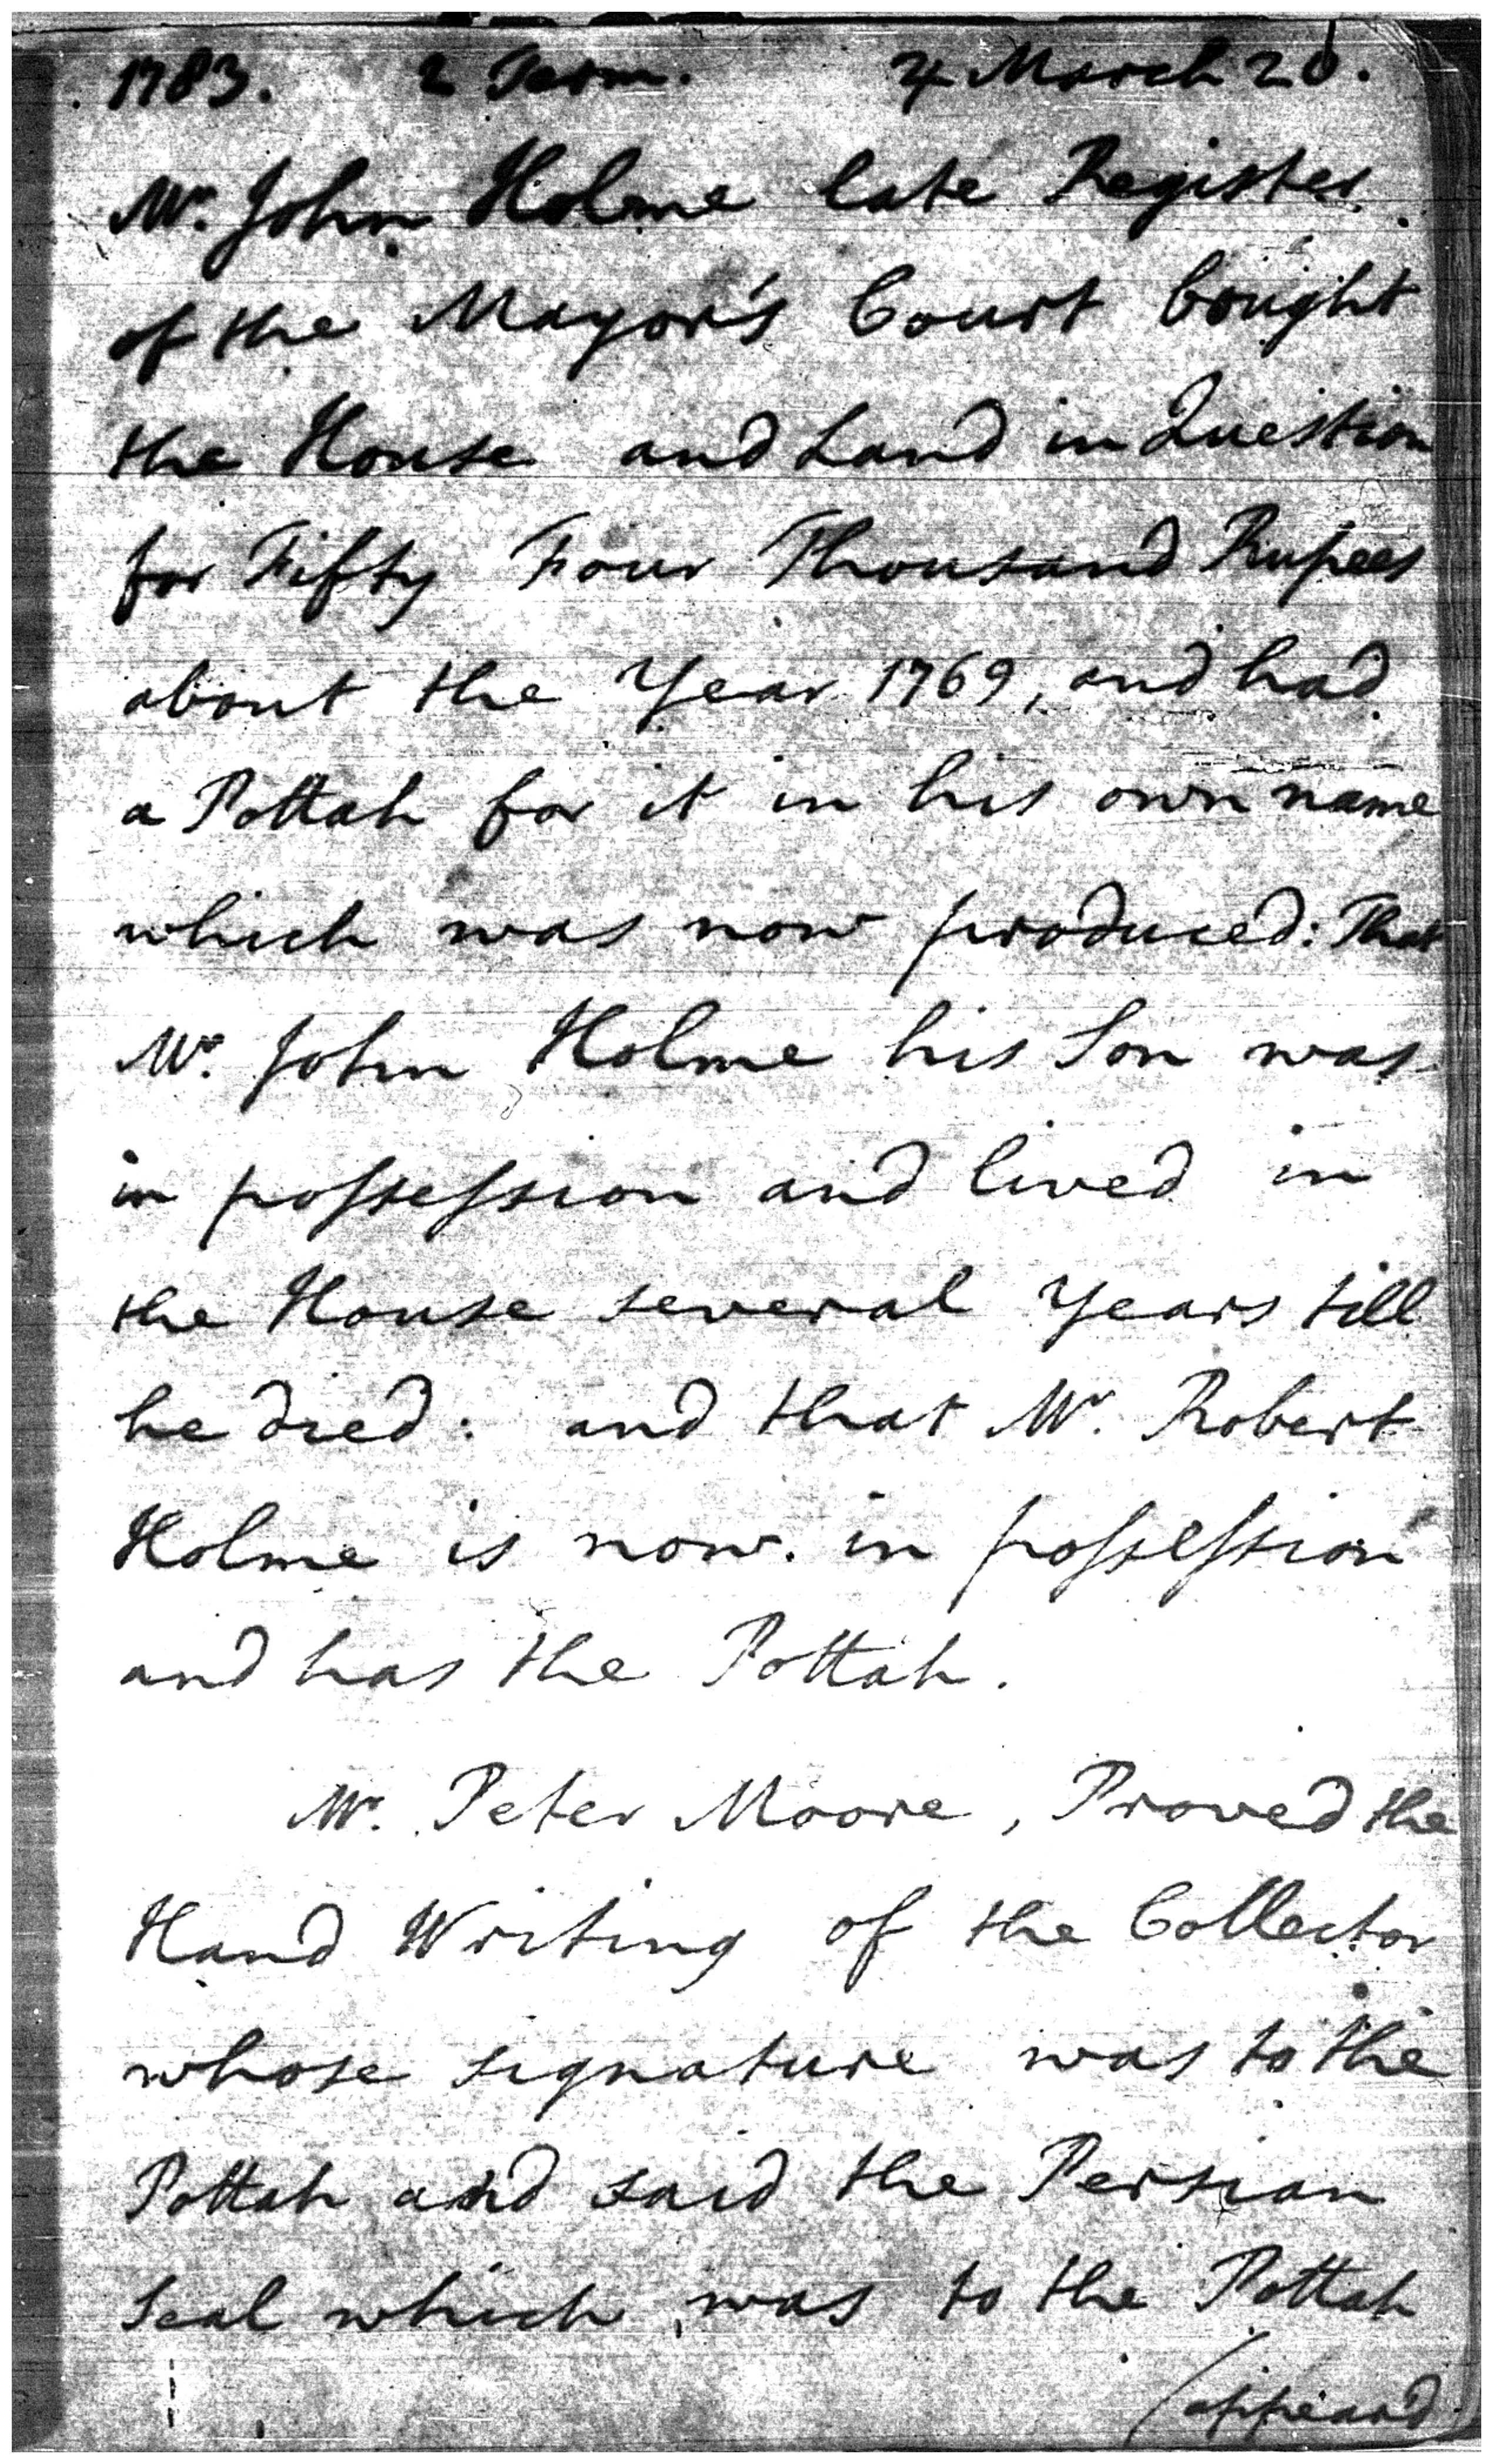 1783. 2 Term. 4 March 20.
Mr. John Holme late Register
of the Mayor's Court bought
the House and Land in Question
for Fifty Four Thousand Rupees
about the Year 1769, and had
a Pottah for it in his own name
which was now produced: That
Mr. John Holme his Son was
in possession and lived in
the House several Years till
he died: and that Mr. Robert
Holme is now in possession
and has the Pottah.
Mr. Peter Moore, Proved the
Hand Writing of the Collector
whose signature was to the
Pottah and said the Persian
Seal which was to the Pottah
(appeard